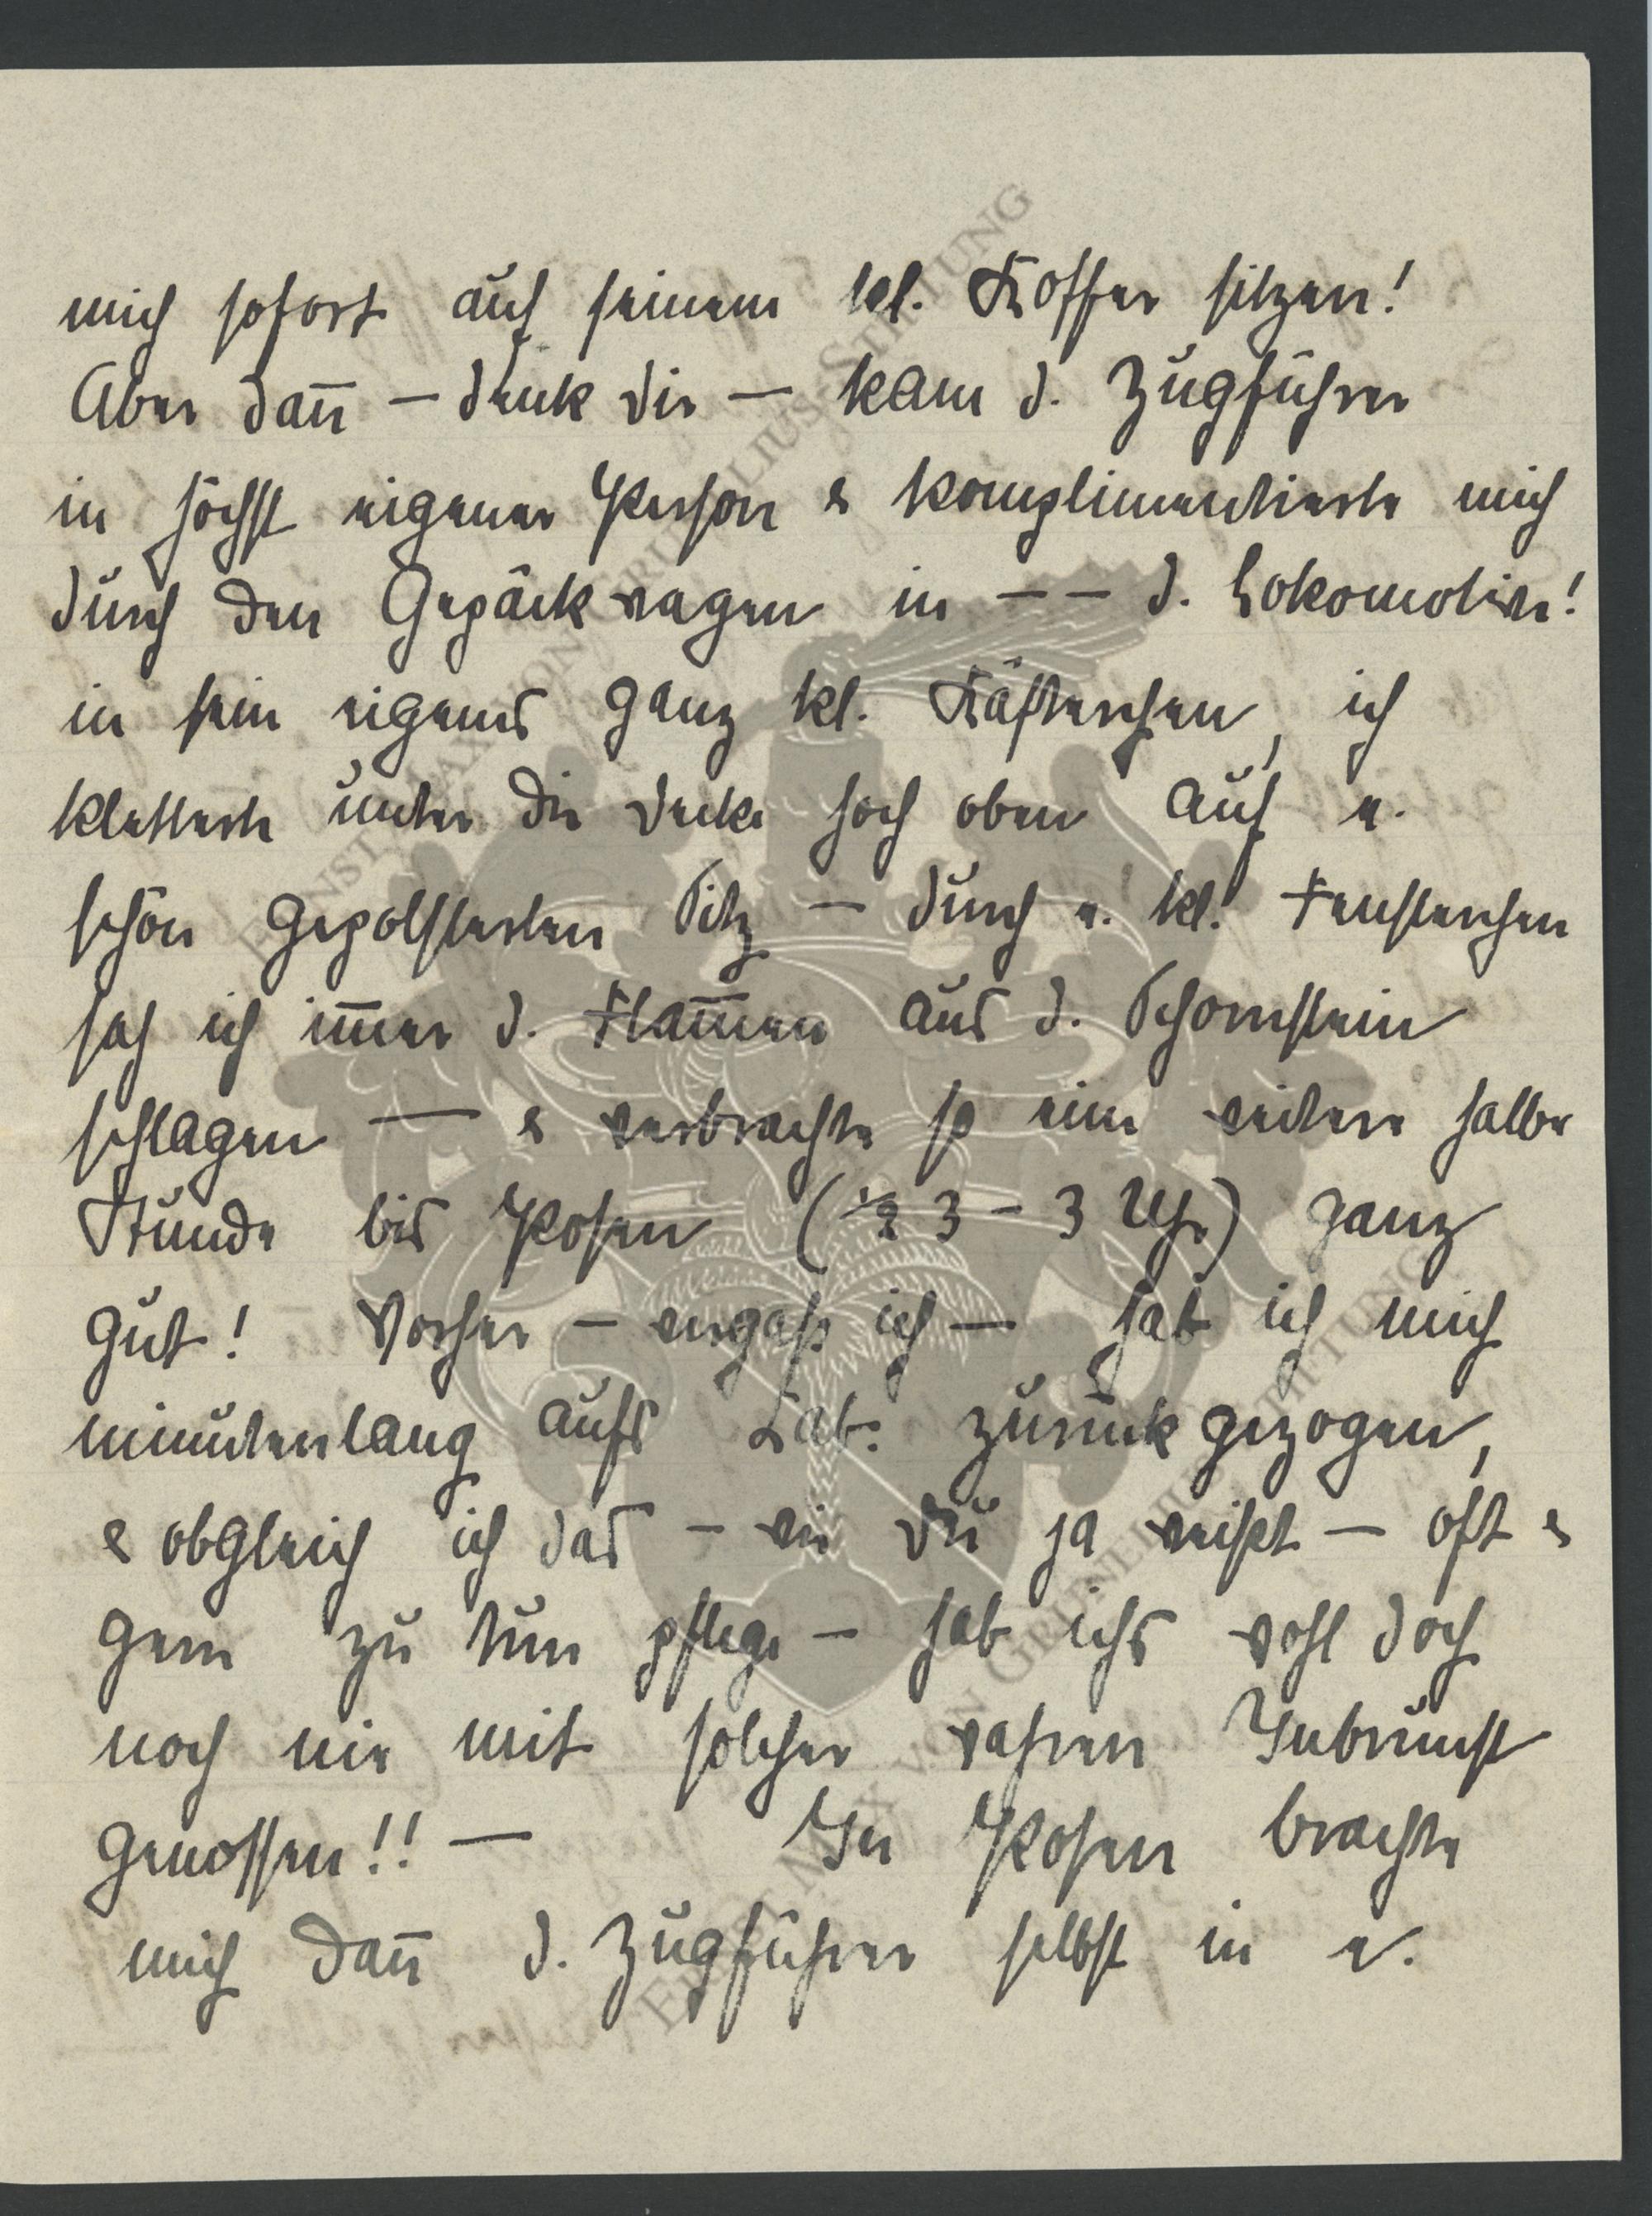 mich sofort auf seinem kl. Koffer sitzen!
Aber dan̅ – denk Dir – kam d. Zugführer
in höchst eigener Person & komplimentierte mich
durch den Gepäckwagen in – – d. Lokomotive!
in sein eigenes ganz kl. Kästerchen, ich
kletterte unter die Decke hoch oben auf e.
schön gepolsterten Sitz – durch e. kl. Fensterchen
sah ich im̅er d. Flam̅en aus d. Schornstein
schlagen — & verbrachte so eine weitere halbe
Stunde bis Posen (½ 3 – 3 Uhr) ganz
gut! Vorher – vergaß ich – hab ich mich
minutenlang aufs Lab. zurück gezogen,
& obgleich ich das – wie Du ja weißt – oft &
gern zu tun pflege – hab ichs wohl doch
noch nie mit solcher wahren Inbrunst
genossen!! — In Posen brachte
mich dan̅ d. Zugführer selbst in e.
ERNST MAX VON GRUNELIUS-STIFTUNG
ERNST MAX VON GRUNELIUS-STIFTUNG